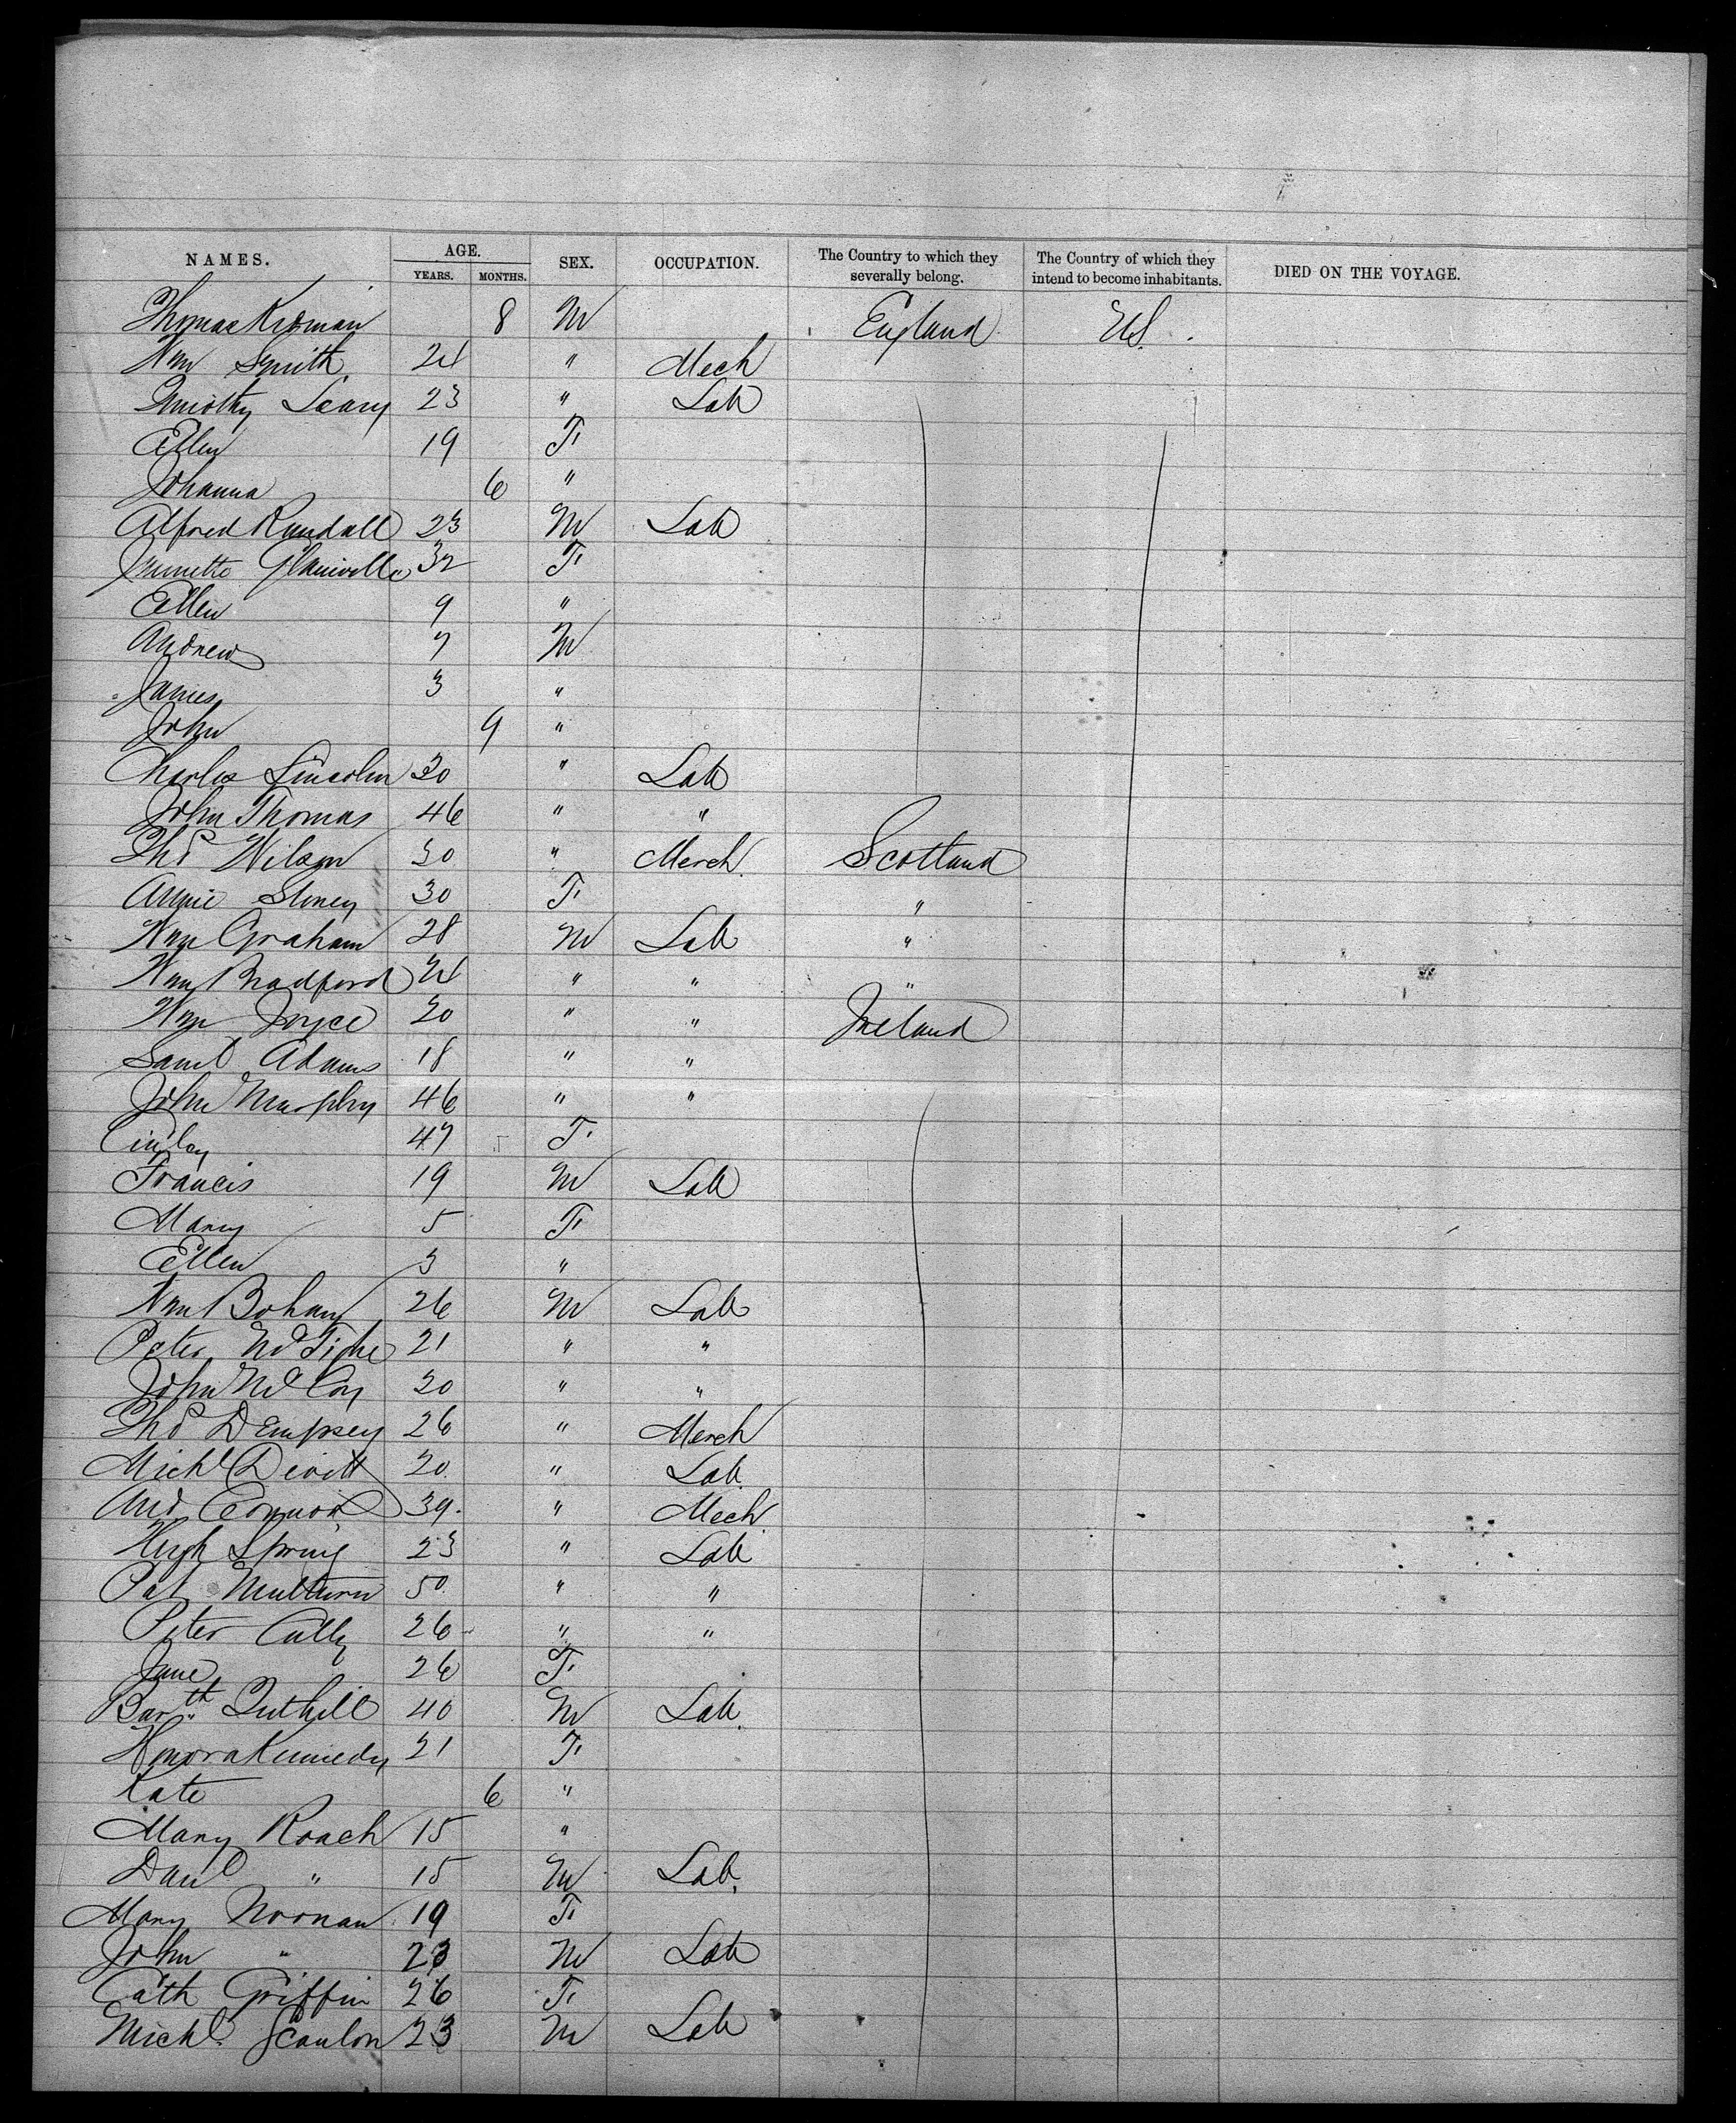 NAMES. AGE. YEARS. MONTHS. SEX. OCCUPATION. The Country to which they severally belong. The Country of which they intend to become inhabitants. DIED ON THE VOYAGE.
Thomas Kirman 8 M England US.
Wm Smith 24 " Mech
Timothy Leary 23 " Lab
Ellen 19 F
Johanna 6 "
Alfred Rundall 23 M Lab
Jennette Glanville 32 F
Ellen 9 "
Andrew 7 M
James 3 "
John 9 "
Charles Lincoln 30 " Lab
John Thomas 46 " "
Thos Wilson 30 " Merch Scotland
Annie Stoney 30 F "
Wm Graham 28 M Lab "
Wm Bradford 24 " " "
Wm Joyce 20 " " Ireland
Saml Adams 18 " "
John Murphy 46 " "
47 F
Francis 19 M Lab
Mary 5 F
Ellen 3 "
Wm Bohan 26 M Lab
Peter McTighe 21 " "
John McCoy 20 " "
Thos Dempsey 26 " Merch
Michl Devitt 20 " Lab
And Connor 39 " Mech
Hugh Spring 23 " Lab
Pat 50 " "
Peter Cully 26 " "
Jane 26 F
Barth. Tuthill 40 M Lab
Honora Kennedy 21 F
Kate 6 "
Mary Roach 15 "
Danl " 15 M Lab
Mary Noonan 19 F
John " 23 M Lab
Cath Griffin 26 F
Michl Scanlon 23 M Lab